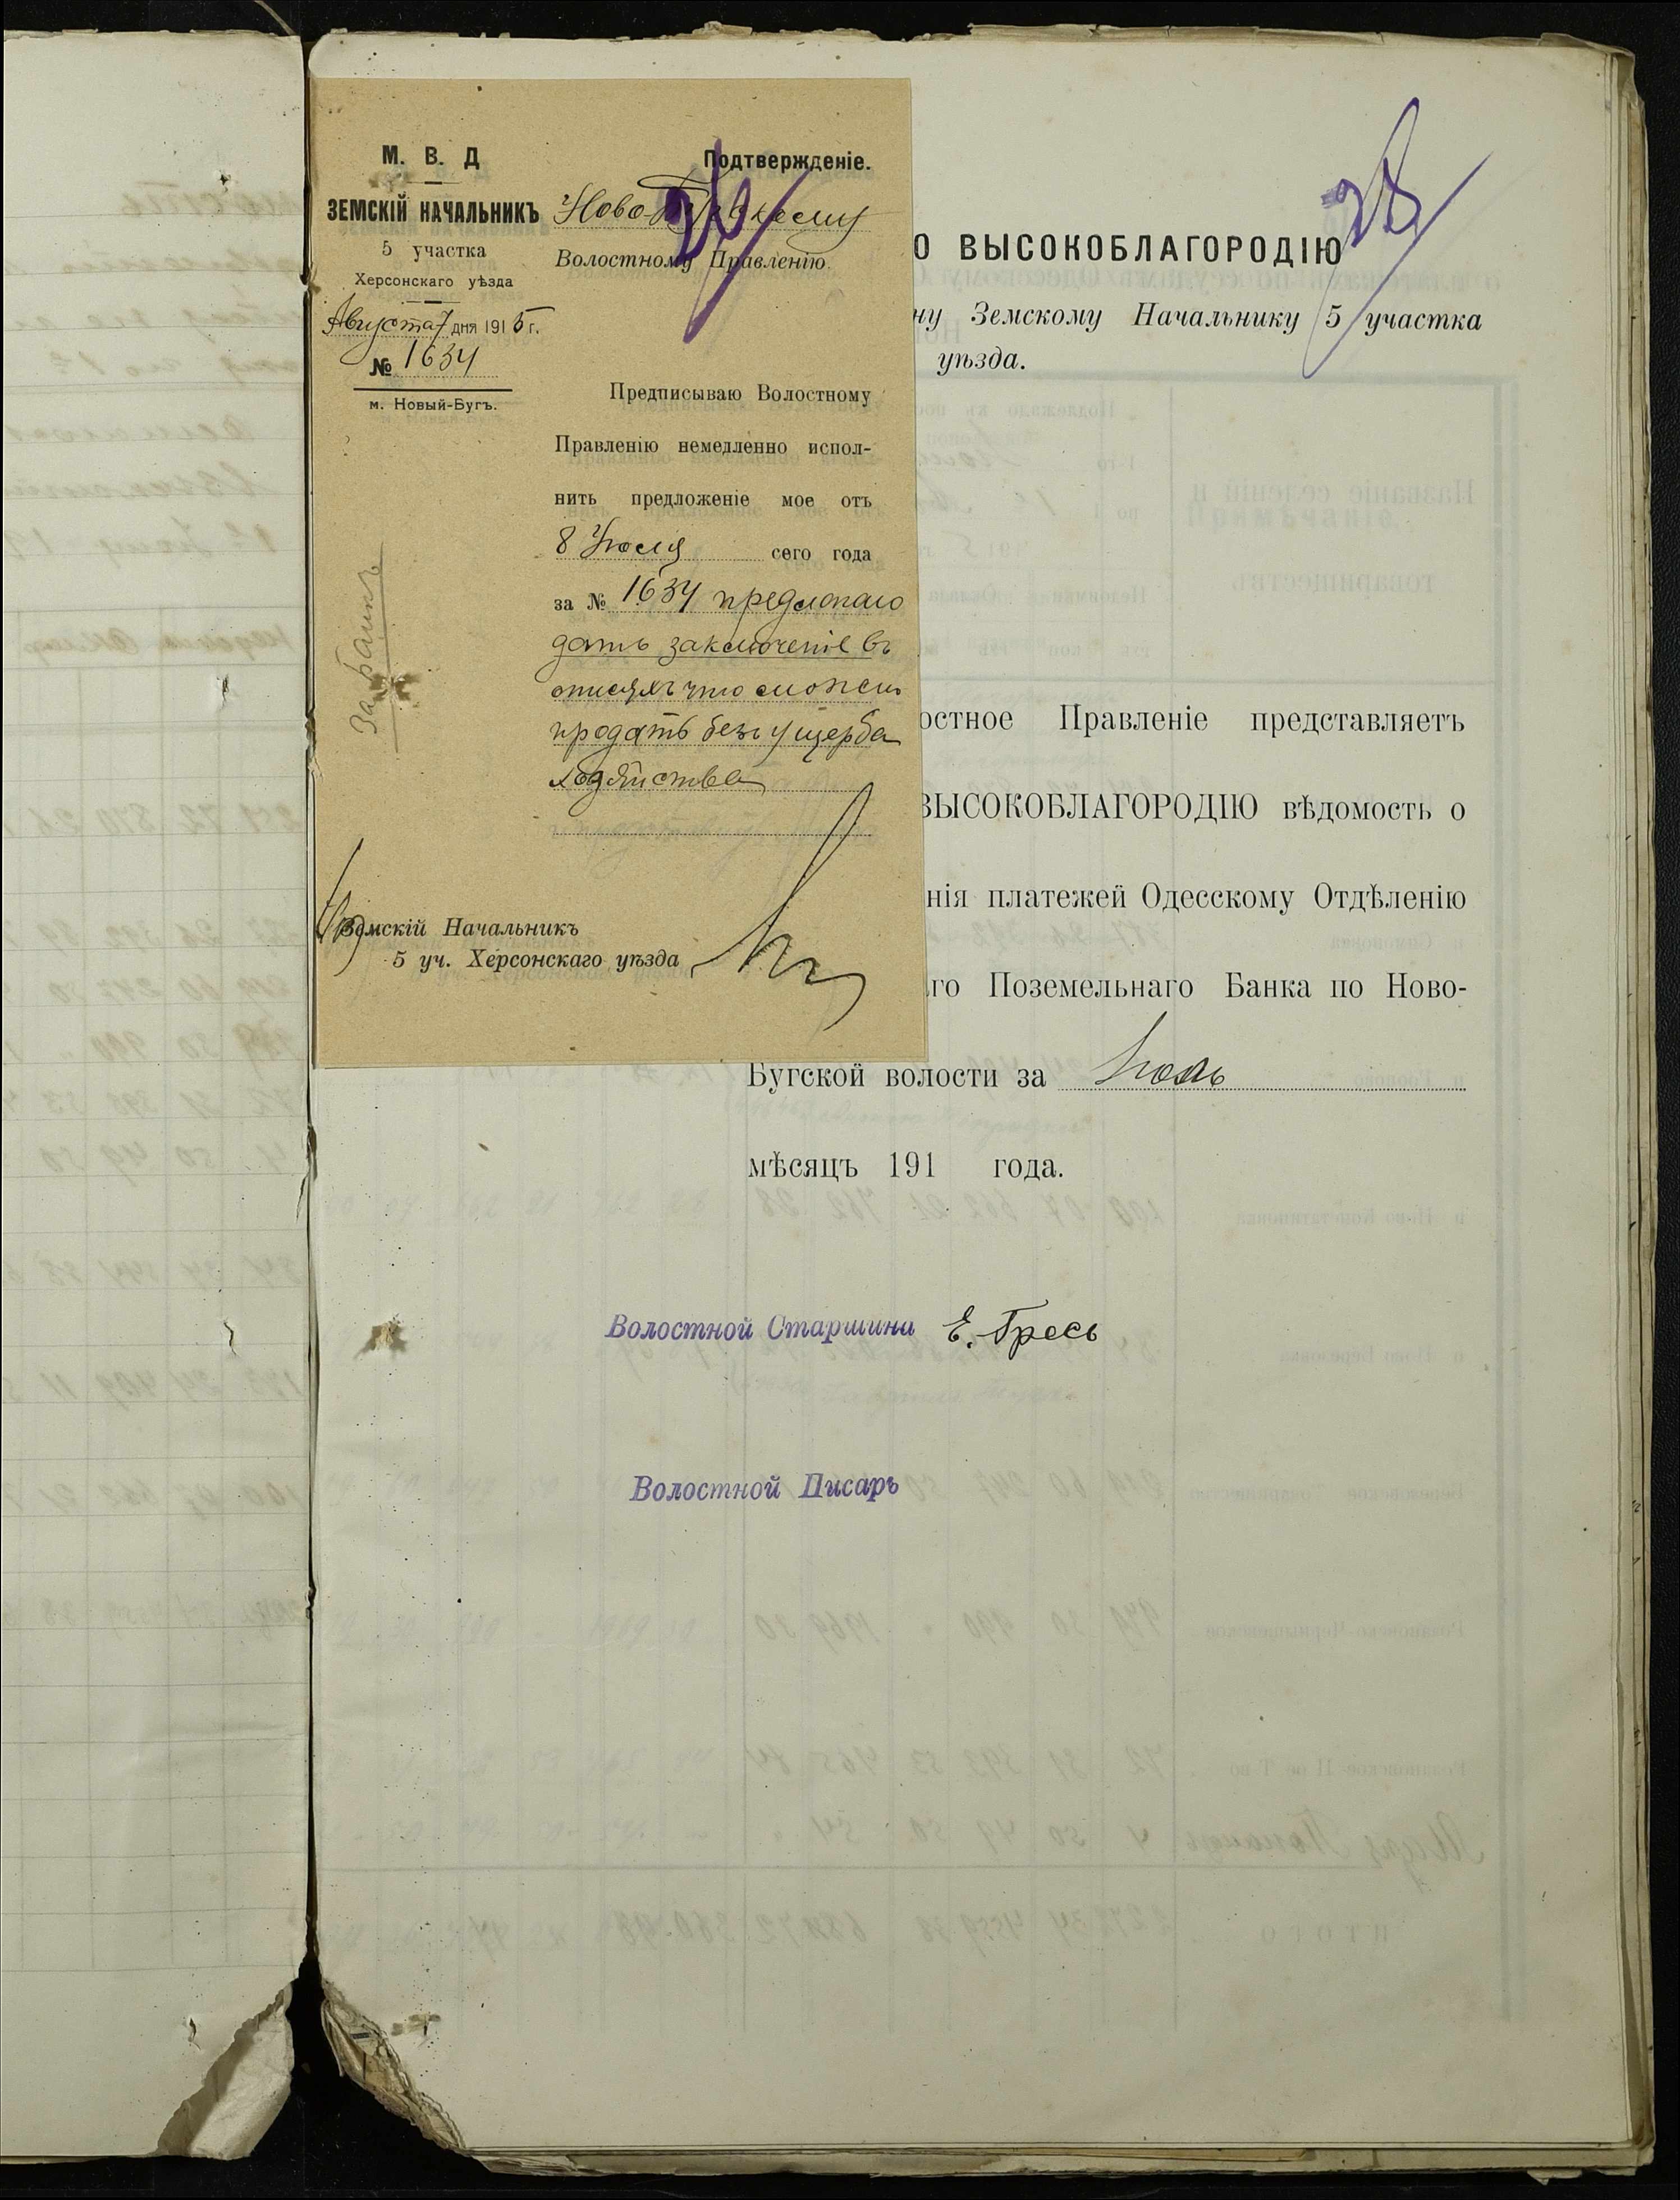 М. В. Д
ЗЕМСКІЙ НАЧАЛЬНИКЪ
5 участка
Херсонскаго уѣзда
Августа 7 дня 1915 г.
№ 1634
м. Новый-Бугъ.
Подтвержденіе.
Ново-Бугскому
Волостному Правленію.
Предписываю Волостному
Правленію немедленно испол-
нить предложеніе мое отъ
8 Іюля сего года
за № 1634 предлагаю
дать заключеніе въ
описяхъ что можно
продать безъ ущерба
хозяйства
Земскій Начальникъ
5 уч. Херсонскаго уѣзда
28
О ВЫСОКОБЛАГОРОДІЮ
ну Земскому Начальнику 5 участка
уѣзда.
остное Правленіе представляетъ
ВЫСОКОБЛАГОРОДІЮ вѣдомость о
нія платежей Одесскому Отдѣленію
го Поземельнаго Банка по Ново-
Бугской волости за Іюль
мѣсяцъ 191 года.
Волостной Старшина Е. Гресь
Волостной Писарь